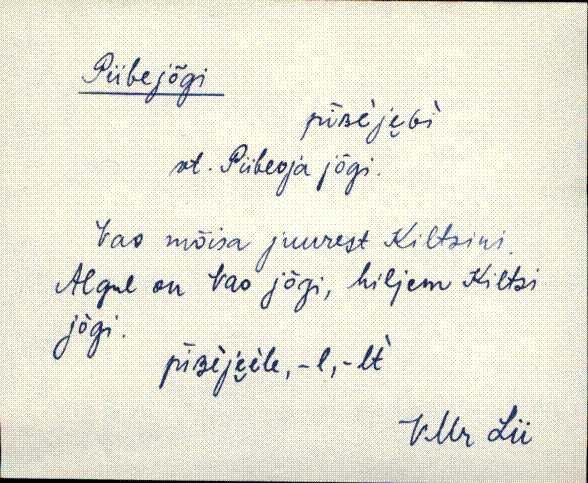 Piibejõgi
pīʙèje̮ɢì
vt. Piibeoja jõgi.
Vao mõisa juurest Kiltsini.
Algul on Vao jõgi, hiljem Kiltsi
jõgi.
pīʙèje̮è̮le, -l, -lt̀
VMr Lii